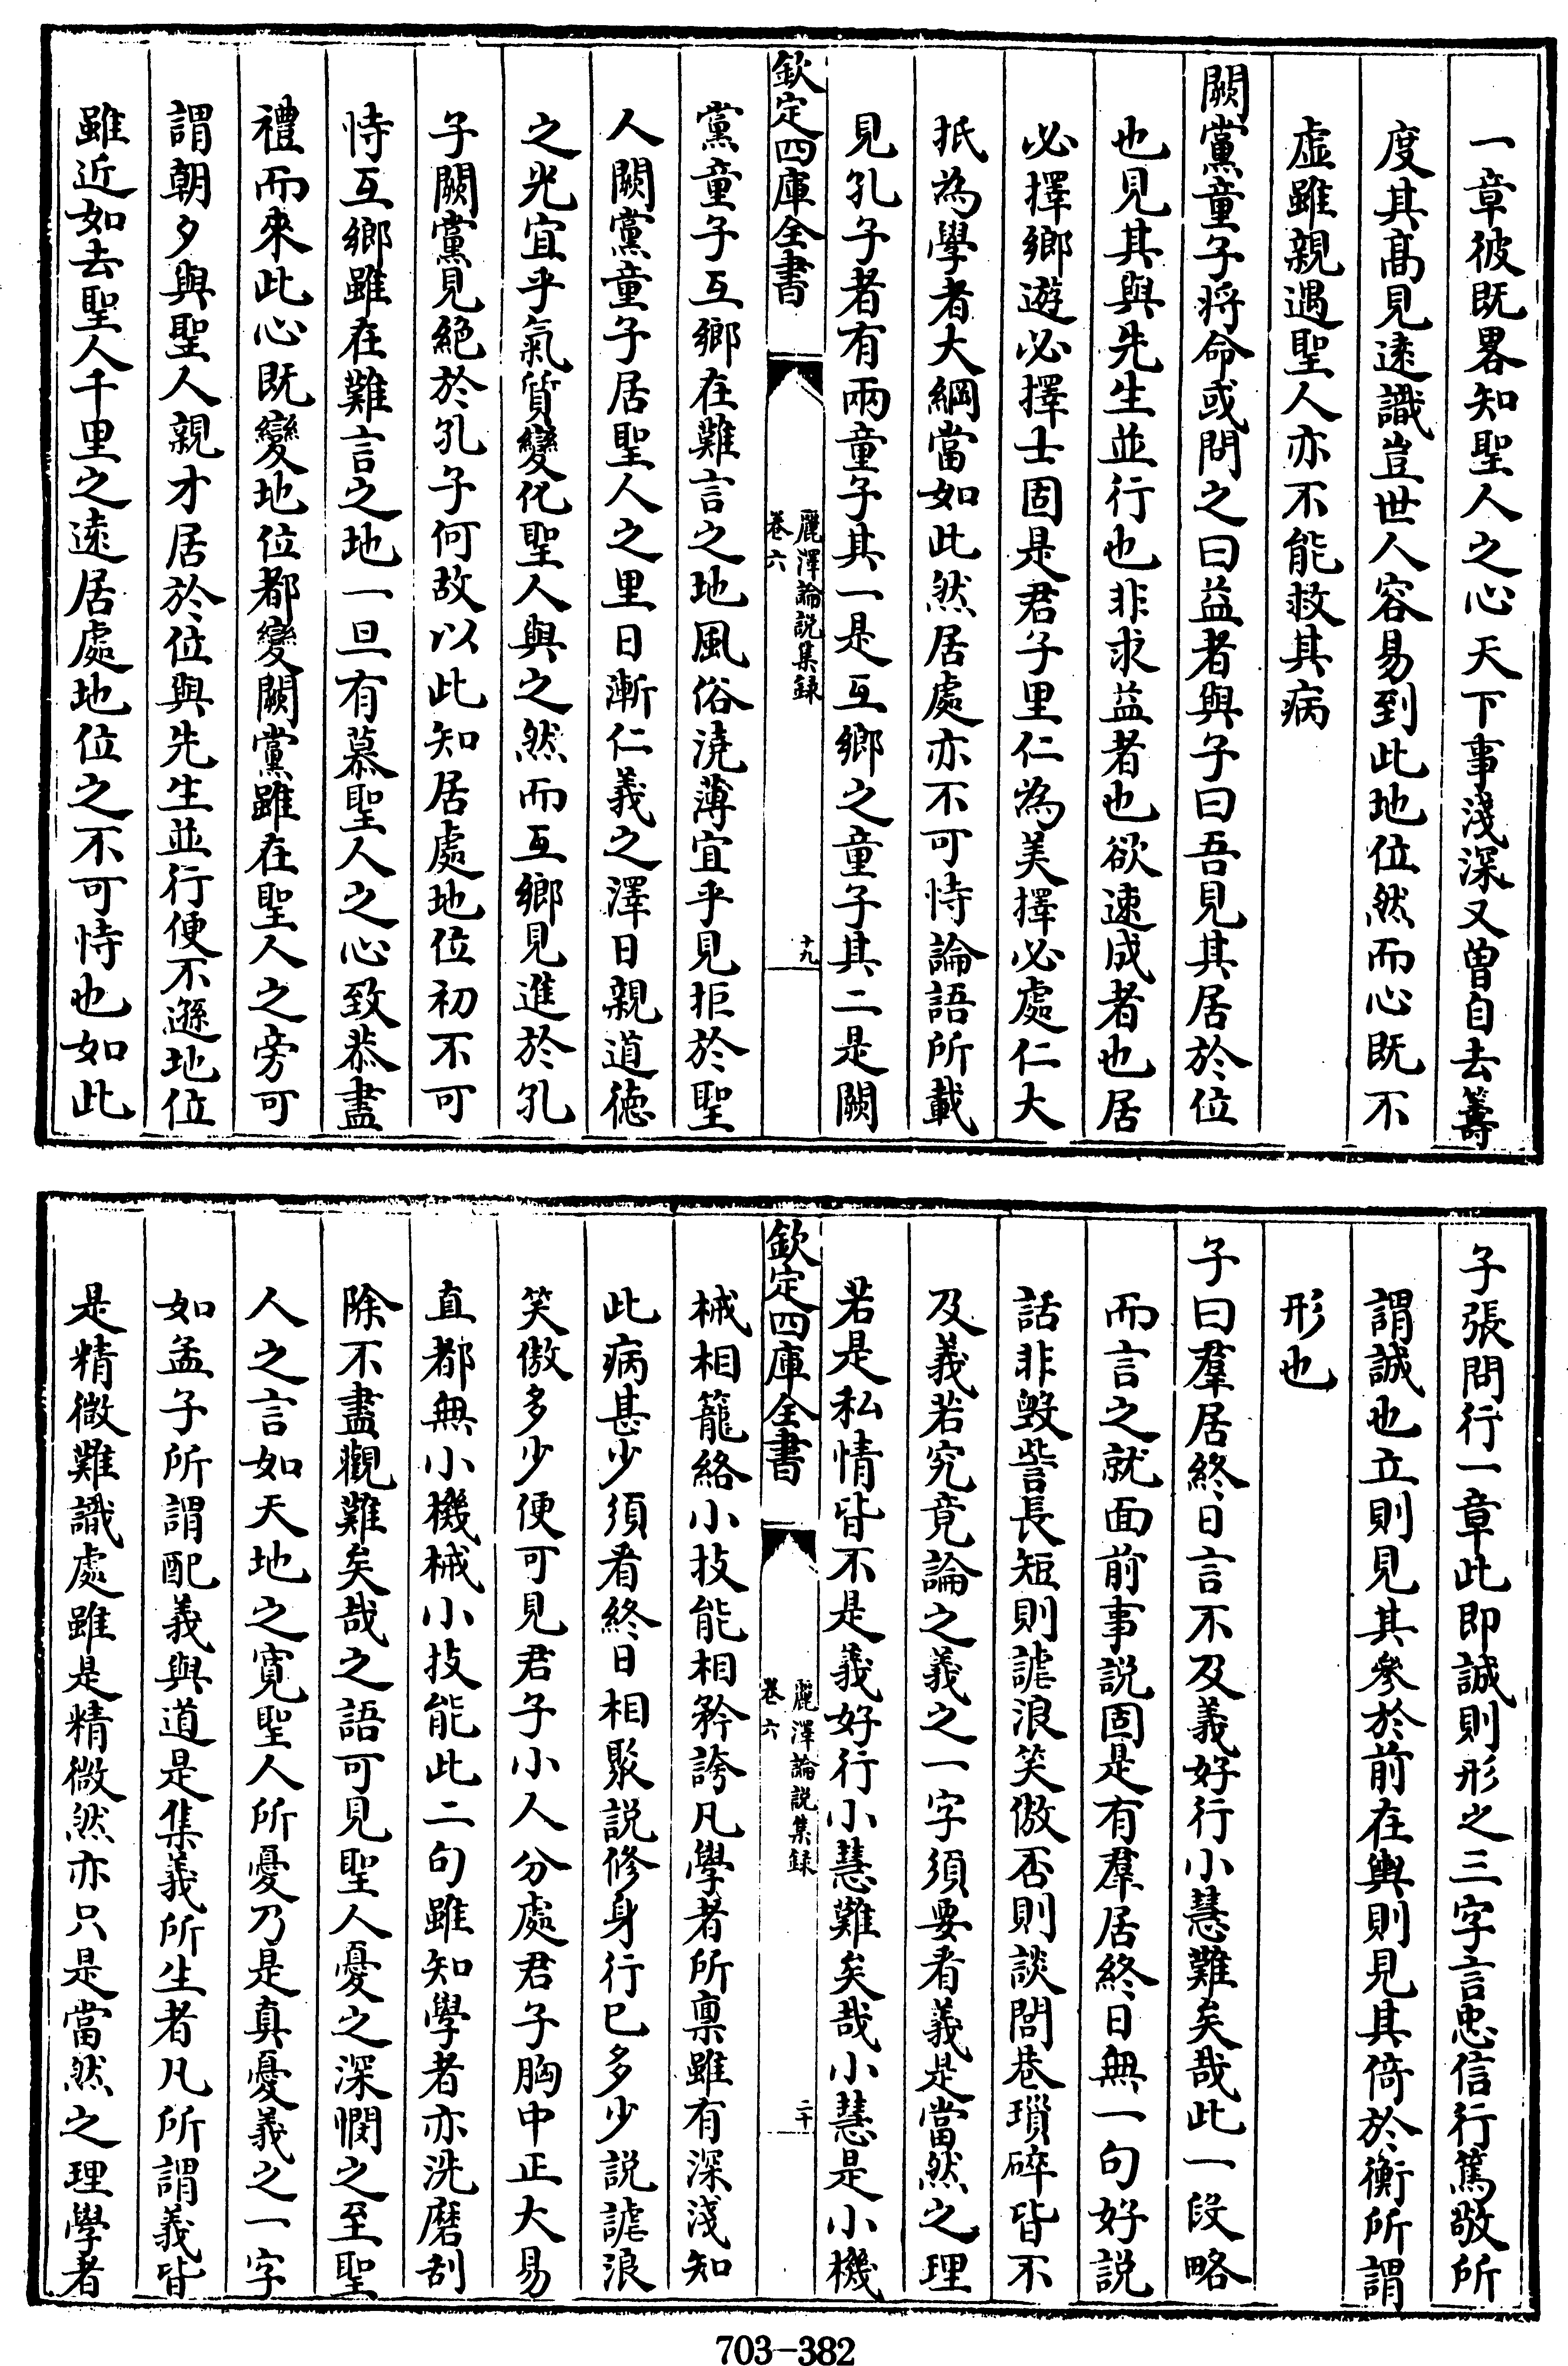 一章彼既畧知聖人之心天下事淺深又曾自去籌
度其髙見逺識豈世人容易到此地位然而心既不
虚雖親遇聖人亦不能救其病
闕黨童子将命或問之曰益者與子曰吾見其居於位
也見其與先生並行也非求益者也欲速成者也居
必擇鄉遊必擇士固是君子里仁為美擇必處仁大
抵為學者大綱當如此然居處亦不可恃論語所載
見孔子者有兩童子其一是互鄉之童子其二是闕
欽定四庫全書
麗澤論説集録
卷六
十九
黨童子互鄉在難言之地風俗澆薄宜乎見拒於聖
人闕黨童子居聖人之里日漸仁義之澤日親道德
之光宜乎氣質變化聖人與之然而互鄉見進於孔
子闕黨見絶於孔子何故以此知居處地位初不可
恃互鄉雖在難言之地一旦有慕聖人之心致恭盡
禮而來此心既變地位都變闕黨雖在聖人之旁可
謂朝夕與聖人親才居於位與先生並行便不遜地位
雖近如去聖人千里之逺居處地位之不可恃也如此
子張問行一章此即誠則形之三字言忠信行篤敬所
謂誠也立則見其參於前在輿則見其倚於衡所謂
形也
子曰羣居終日言不及義好行小慧難矣哉此一段略
而言之就面前事説固是有羣居終日無一句好説
話非毀訾長短則謔浪笑傲否則談閭巷瑣碎皆不
及義若究竟論之義之一字須要看義是當然之理
若是私情皆不是義好行小慧難矣哉小慧是小機
欽定四庫全書
麗澤論説集録
卷六
二十
械相籠絡小技能相矜誇凡學者所稟雖有深淺知
此病甚少須看終日相聚説修身行已多少説謔浪
笑傲多少便可見君子小人分處君子胸中正大易
直都無小機械小技能此二句雖知學者亦洗磨刮
除不盡觀難矣哉之語可見聖人憂之深憫之至聖
人之言如天地之寛聖人所憂乃是真憂義之一字
如孟子所謂配義與道是集義所生者凡所謂義皆
是精微難識處雖是精微然亦只是當然之理學者
703-382